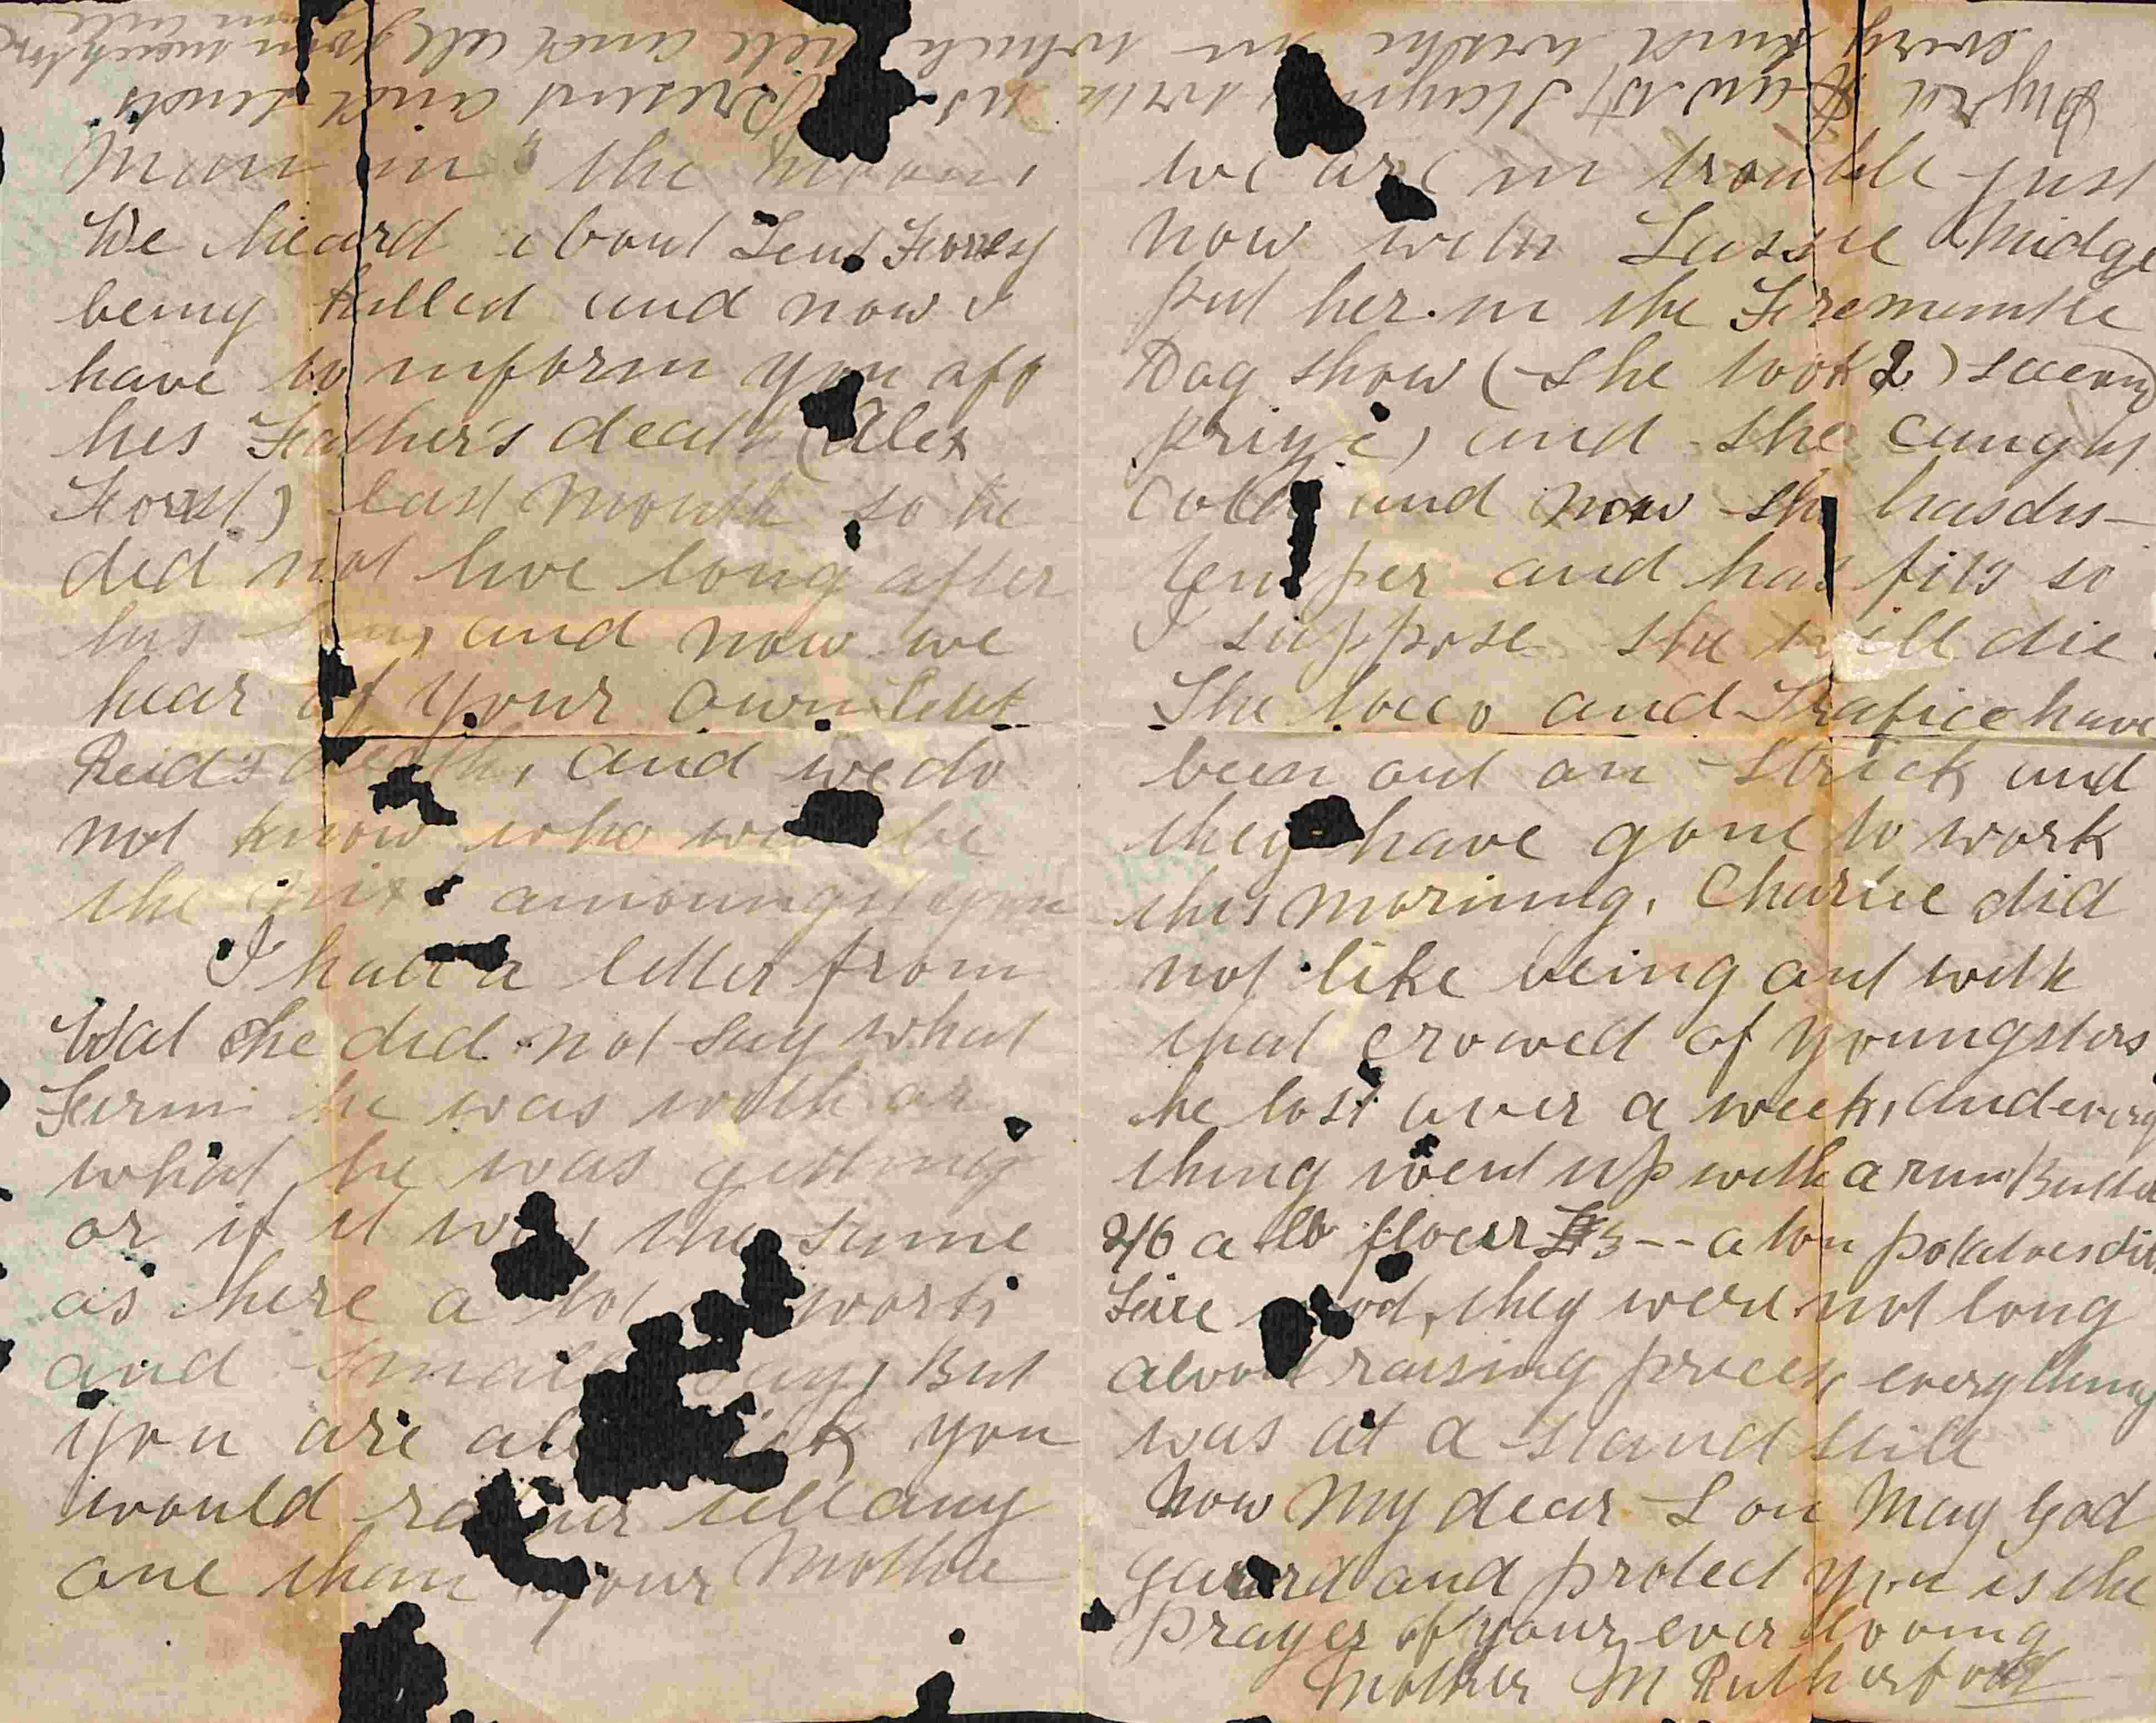 Man in the moon,
We heard about Leut Forrey
being killed and now I
have to inform you off
hes Father's death (Alex
Forst) last Month so he
did not live long after
his and now we
hear of your own Leut
Reid's death, and we do
not know who will be
the amoungst you
I had a letter from
Wal he did not say what
Firm he was with or
what he was getting
or if it was the same
as here a lot works
and small pay, But
you are all you
would rather tell any
one than your Mother
we are in trouble just
now with Lassie Midge
put her in the Firemantle
Dog show (she took 2) second
prize) and she caught
Cold and now she has dis-
temper and has fits so
I suppose she will die.
The loco and Trafice have
been out on strick and
they have gone to work
this morning, Charlie did
not like being out with
that crowed of youngsters
he lost over a week, and every
thing went up with a run Butter
2/6 a lb flour £3-- a ton potatoes
they were not long
about raising prices, everything
was at a stand still
Now My dear Son May God
guard and protect you is the
prayer of your ever loving
Mother M Rutherford
every kind wishe in which all